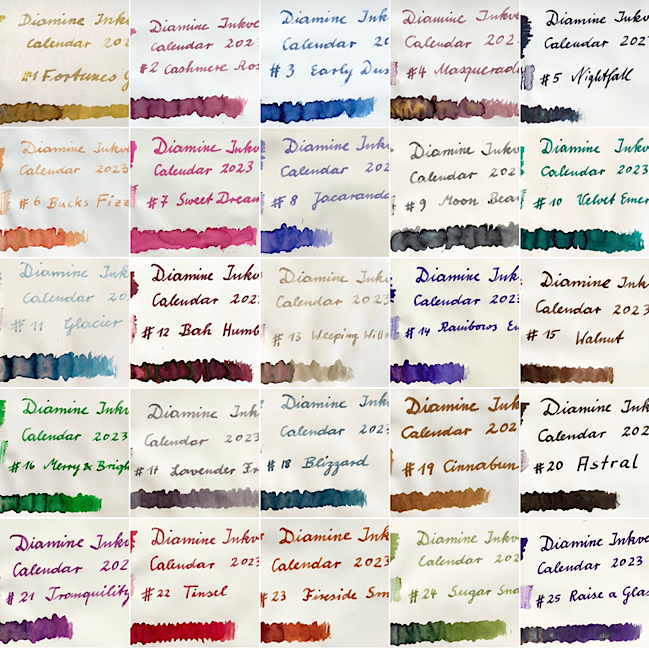 Diamine Inkv
Calendar 202
#1 Fortunes G
Diamine Inkv
Calendar 202
#2 Cashmere Ros
Diamine Ink
Calendar 20
#3 Early Dus
Diamine Inkv
Calendar 202
#4 Masquerade
Diamine Inkv
Calendar 202
#5 Nightfall
Diamine Inkv
Calendar 2023
#6 Bucks Fizz
Diamine Inkv
Calendar 2023
#7 Sweet Dream
Diamine Inkv
Calendar 202
#8 Jacaranda
Diamine Inkv
Calendar 202
#9 Moon Bea
Diamine Inkv
Calendar 2023
#10 Velvet Emer
Diamine Ink
Calendar 20
#11 Glacier
Diamine Inkv
Calendar 202
#12 Bah Humb
Diamine Inkv
Calendar 2023
#13 Weeping Willo
Diamine Inkv
Calendar 202
#14 Rainbows En
Diamine Inkv
Calendar 2023
#15 Walnut
Diamine Inkv
Calendar 2023
#16 Merry & Brigh
Diamine Ink
Calendar 2023
#17 Lavender Fr
Diamine Inkv
Calendar 2023
#18 Blizzard
Diamine Ink
Calendar 202
#19 Cinnabun
Diamine Ink
Calendar 2023
#20 Astral
Diamine Inkv
Calendar 202
#21 Tranquility
Diamine Inkv
Calendar 2023
#22 Tinsel
Diamine Ink
Calendar 2023
#23 Fireside Sn
Diamine Inkv
Calendar 202
#24 Sugar Sna
Diamine Inkv
Calendar 2023
#25 Raise a Glas